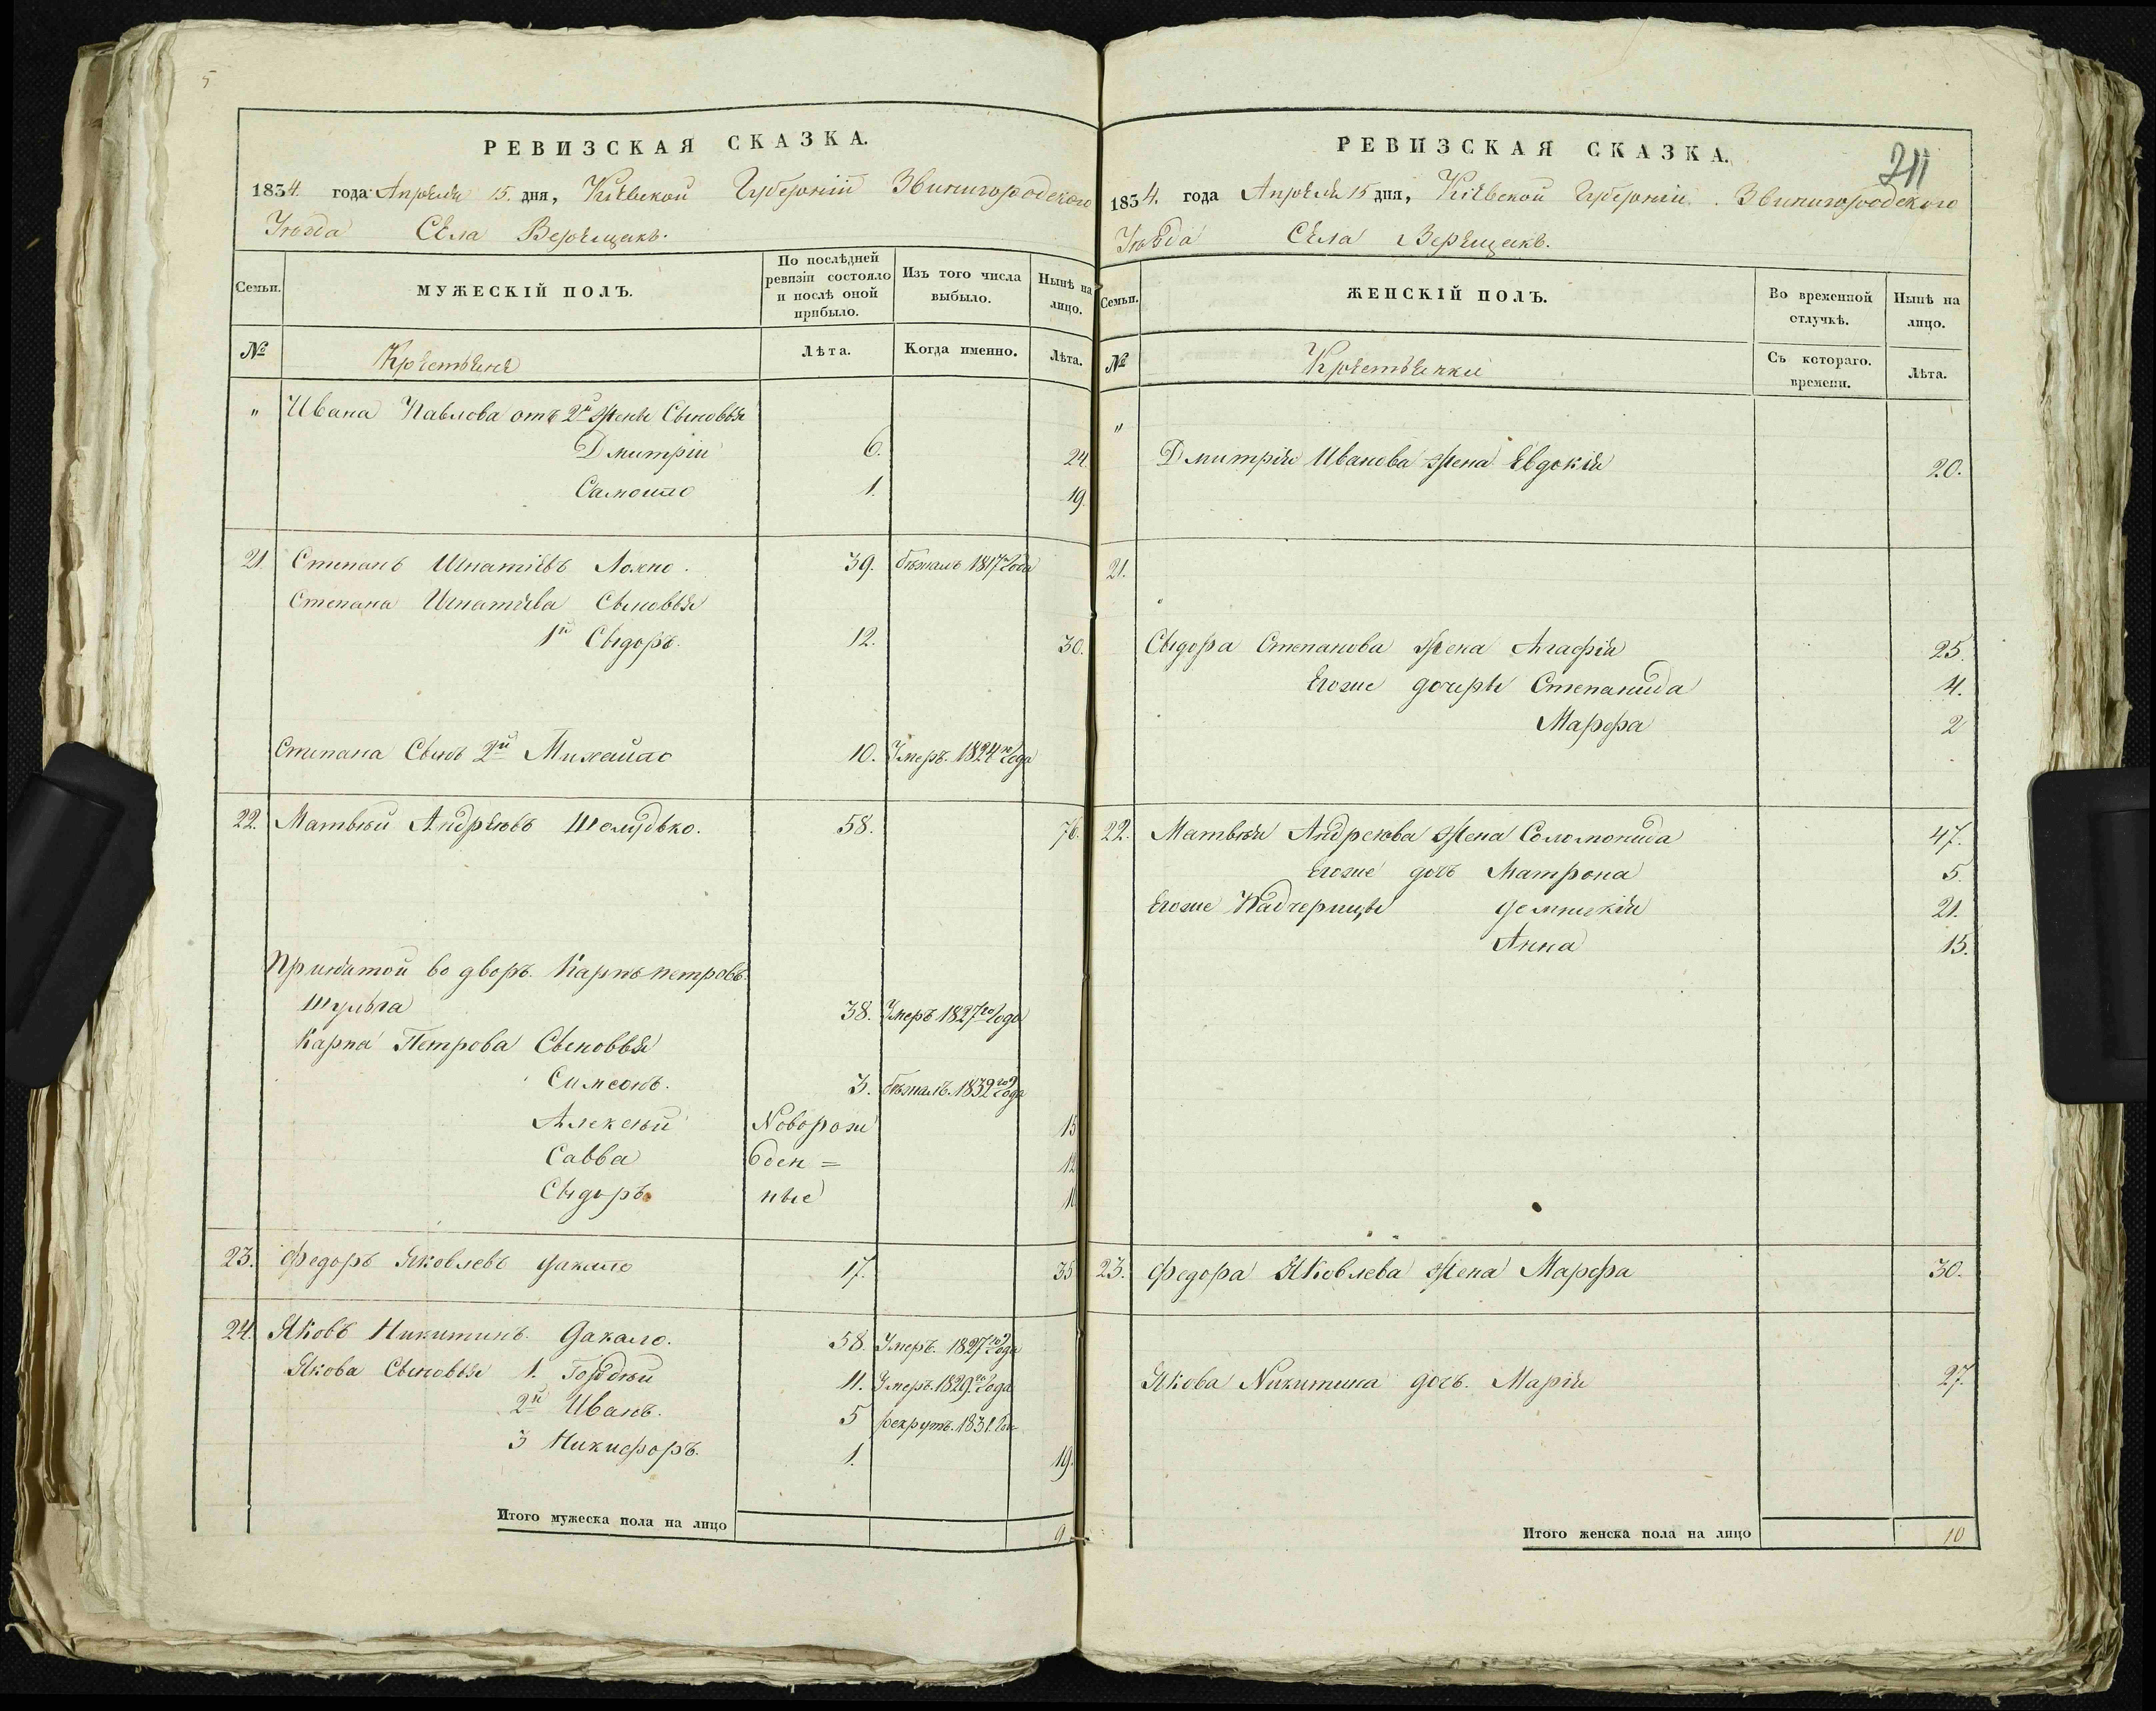 5
РЕВИЗСКАЯ СКАЗКА.
1834. года Апрѣля 15. дня, Кіевской Губерніи Звинигородского
Уѣзда Села Верещакъ.
Семьи.
МУЖЕСКІЙ ПОЛЪ.
По послѣдней ревизіи состояло и послѣ оной прибыло.
Изъ того числа выбыло.
Нынѣ на лицо.
№
Крестьяне
Лѣта.
Когда именно.
Лѣта.
" Ивана Павлова отъ 2й жены Сыновья
Дмитрій 6. 24.
Самойло 1. 19.
21. Степанъ Игнатіевъ Лохно. 39. бѣжалъ 1817го Года
Степана Игнатіева Сыновья
1й Сыдоръ. 12. 30.
Степана Сынъ 2й Михайло 10. Умеръ. 1824го Года
22. Матвѣй Андрѣювъ Шолудько. 58. 76.
Принятой во дворъ. Карпъ петровъ.
Шульга 38. Умеръ 1827го Года
Карпа Петрова Сыновья
Симеонъ. 3. бѣжалъ. 1832го Года
Алексѣй Новорож 15
Савва ден = 12
Сыдоръ ные
23. Федоръ Яковлевъ Дакало 17. 35
24. Яковъ Никитинъ. Дакало. 58. Умеръ. 1827го Года
Якова Сыновья 1. Гордѣй 11. Умеръ. 1829го Года
2й Иванъ. 5 рекрутъ. 1831. Го
3 Никифоръ. 1. 19.
Итого мужеска пола на лицо 9
РЕВИЗСКАЯ СКАЗКА.
211
1834. года Апрѣля 15 дня, Кіевской Губерніи. Звинигородского
Уѣзда Села Верещакъ.
Семьи.
ЖЕНСКІЙ ПОЛЪ.
Во временной отлучкѣ.
Нынѣ на лицо.
№
Крестьянки
Съ котораго. времени.
Лѣта.
"
Дмитрія Иванова жена Евдокія 20.
21.
Сыдора Степанова жена Агафія 25.
Егоже дочеры Степанида 4.
Марфа 2
22. Матвѣя Андреюва жена Соломонида 47.
Егоже дочь Матрона 5.
Егоже Надчерицы Домникія 21.
Анна 15.
23. Федора Яковлева жена Марфа 30.
Якова Никитина дочь. Марія 27.
Итого женска пола на лицо 10